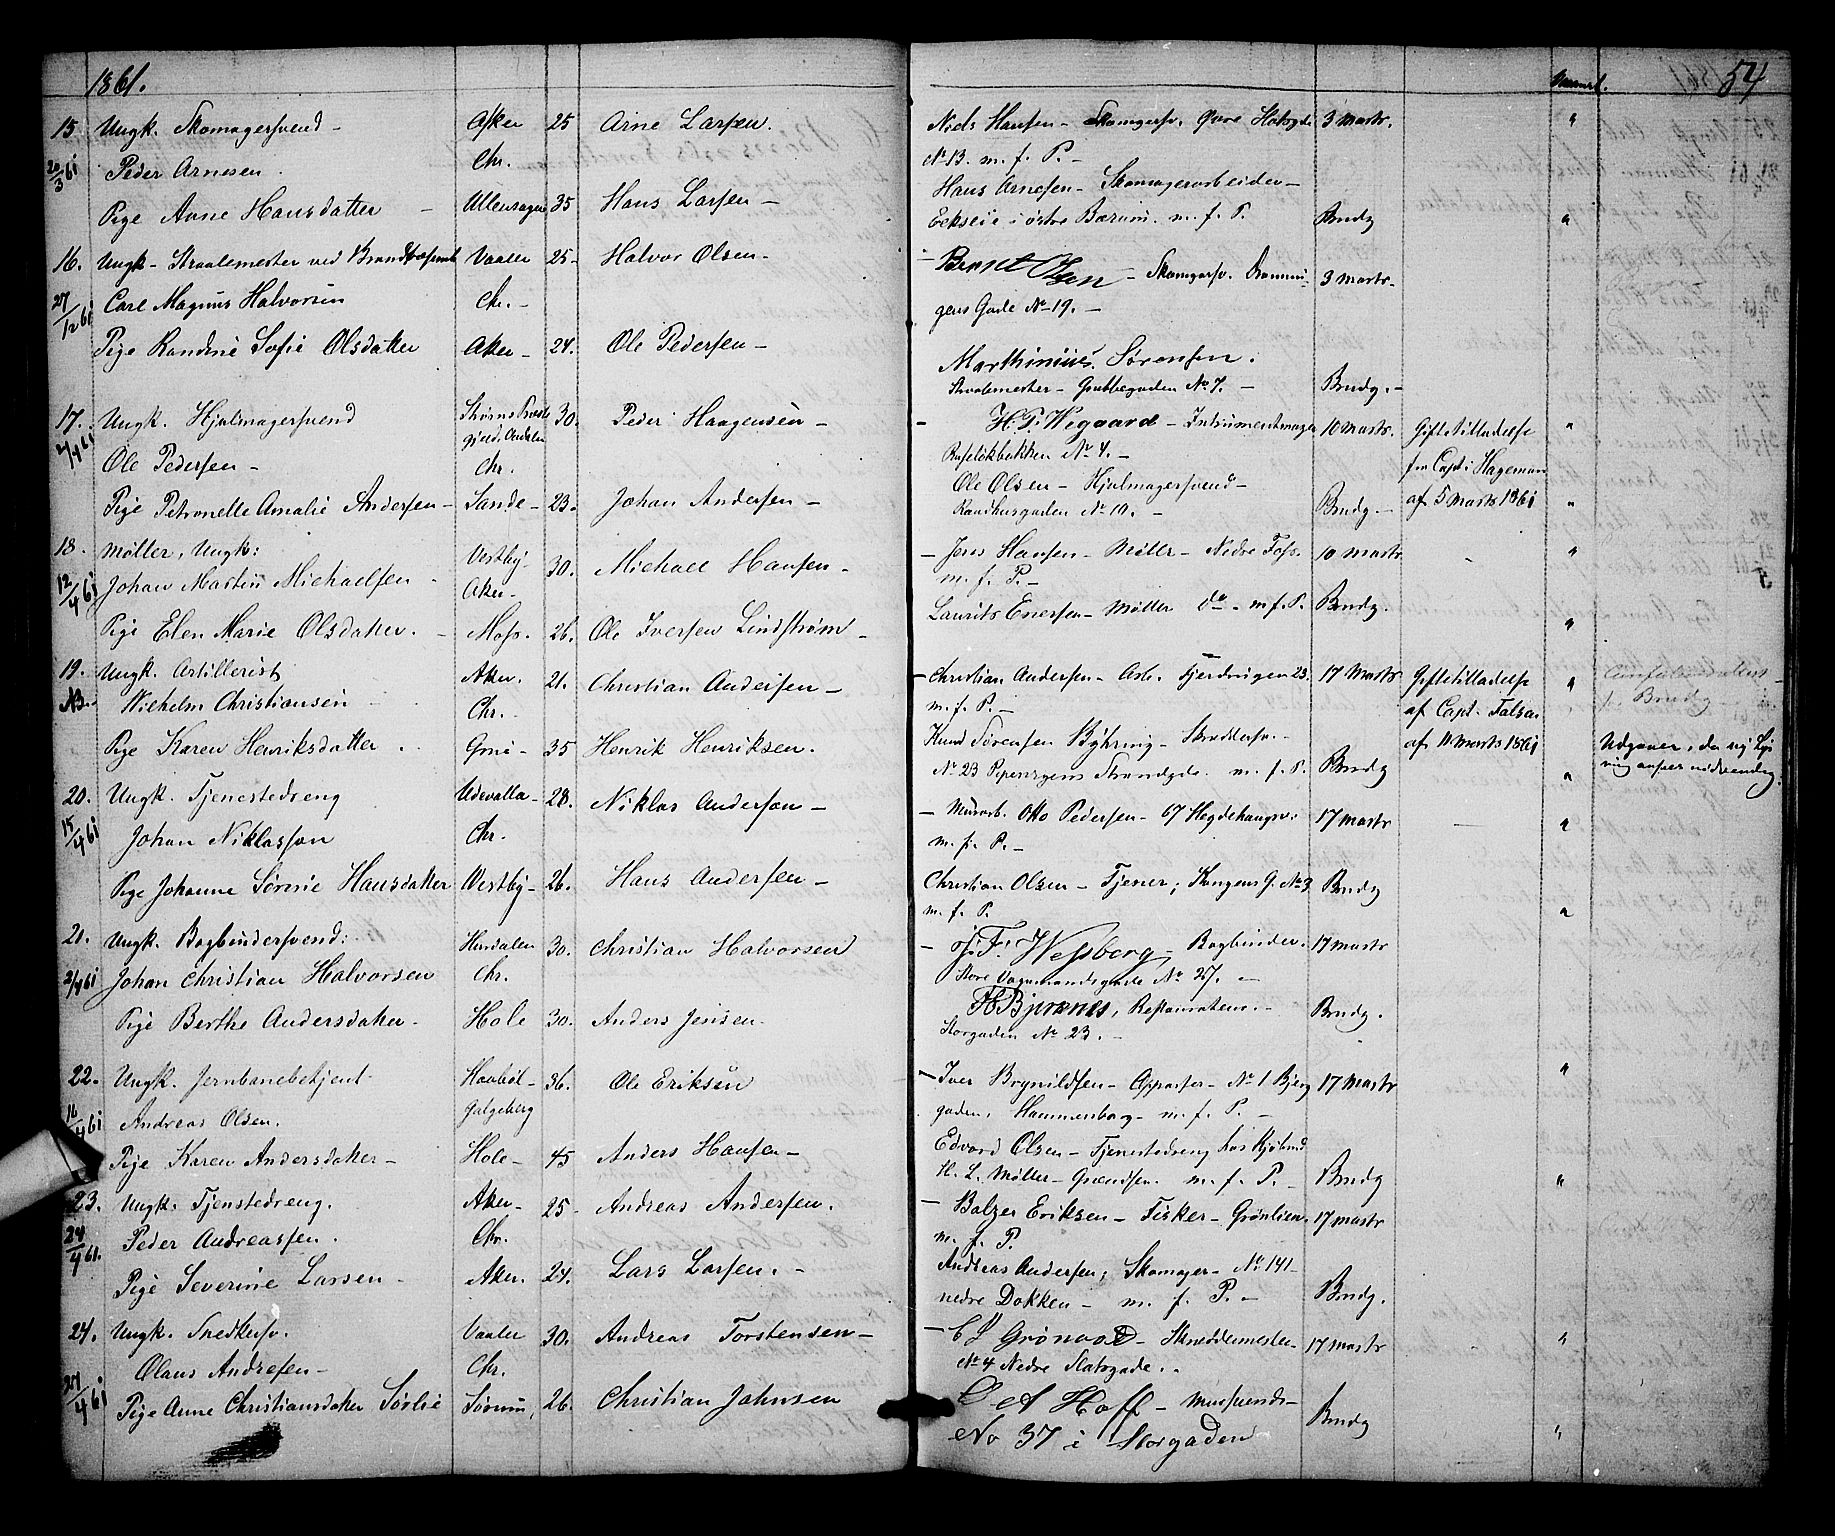 1861.
54
15 Ungk. Skomagersvend - Asker 25 Arne Larsen.
20/3 61 Peder Arnesen. Chr.
Pige Anne Hansdatter - Ullensager 35 Hans Larsen -
16. Ungk - Straalemester ved Vaaler 25 - Halvor Olsen -
27/12 61 Carl Magnus Halvorsen Chr. -
Pige Randine Sofie Olsdatter Aker - 24. Ole Pedersen -
17. Ungk. Hjulmagersvend 30. Peder Haagensen -
2/4 61 Ole Pedersen - Chr.
Pige Petronelle Amalie Andersen - Sande - 23. Johan Andersen -
18. Møller, Ungk: Vestby - 30. Michael Hansen -
12/4 61 Johan Martin Michaelsen - Aker.
Pige Elen Marie Olsdatter. - Moss. 26. Ole Iversen Lindstrøm -
19. Ungk. Artillerist Aker. 21. Christian Andersen -
NB. Wilhelm Christiansen Chr.
Pige Karen Henriksdatter. 35 Henrik Henriksen.
20. Ungk. Tjenestedreng Udevalla - 28. Niklas Anderson -
15/4 61 Johan Niklasson Chr.
Pige Johanne Sørine Hansdatter Vestby - 26. Hans Andersen -
21. Ungk. Bogbindersvend: Hurdalen 30. Christian Halvorsen
2/4 61 Johan Christian Halvorsen Chr.
Pige Berthe Andersdatter. Hole 30. Anders Jensen.
22. Ungk. Jernbanebetjent. Haabøl - 36. Ole Eriksen
16/4 61 Andreas Olsen. Galgeberg
Pige Karen Andersdatter - Hole - 45 Anders Hansen -
23. Ungk. Tjenstedreng. Aker - 25 - Andreas Andersen.
24/4 61. Peder Andreassen. Chr.
Pige Severine Larsen - Aker. 24. Lars Larsen. -
24. Ungk. Snedkersv. Vaaler 30. Andreas Torstensen -
27/4 61 Olaus Andresen - Chr.
Pige Anne Christiansdatter Sørlie Sørum, 26. Christian Johnsen
Niels Hansen - Skomagersv. 3 Marts.
No 13. m. f. P. -
Hans Arnesen - Skomagerarbeider -
i østre Bærum. m. f. P. Brudg
- Bernt Olsen - Skomagersv. Dronnin- 3 Marts -
gens Gade No 19. -
Marthinius Sørensen.
Straalemester - Grubbegaden No 7. - Brudg. -
- H. P. Wegaard - Intrumentmager 10 Marts. Giftetilladelse "
Ruseløkbakken No 4. - fra Capt: Hageman
Ole Olsen - Hjulmagersvend - af 5 Marts 1861 "
Raadhusgaden No 10. - Brudg. -
- Jens Hansen - Møller - Nedre Foss. 10 Marts - "
m. f. P. -
Laurits Enersen - Møller Do - m. f. P. Brudg. "
- Christian Andersen - Arb. Fjerdingen 23. 17 Marts Giftetilladelse "
m. f. P. - af Capt. Falsen
Knud Sørensen Byhring - Skreddersv. - af 11 Marts 1861
No 23 Pipervigens Strandgde. m. f. P. Brudg "
Udgaaer, da ny Lys-
ning ansees nødvendig.
- Murarb. Otto Pedersen - 67 Hegdehaugsv: 17 Marts - "
m. f. P. -
Christian Olsen - Tjener; Kongens G. No 3 Brudg
m. f. P. "
- J. F. Wessberg, Bogbinder. 17 Marts
Store Vognmandsgade No 27. -
H Bjerknes, Restaurateur. - Brudg.
Storgaden No 23. -
- Iver Brynildsen - Oppasser - No 1 Bjerg 17 Marts "
gaden, Hammersborg - m. f. P. -
Edvard Olsen - Tjenestedreng hos Kjøbmd
H. L. Møller - Grændsen. m. f. P. - Brudg "
- Balzer Eriksen - Fisker - Grønlien. 17 Marts
m. f. P.
Andreas Andersen; Skomager - No 141 -
nedre Dokken - m. f. P. - Brudg.
- Skreddermester 17 Marts "
No 4 Nedre Slotsgade. -
C A Hoff -
No 37 i Storgaden Brudg "